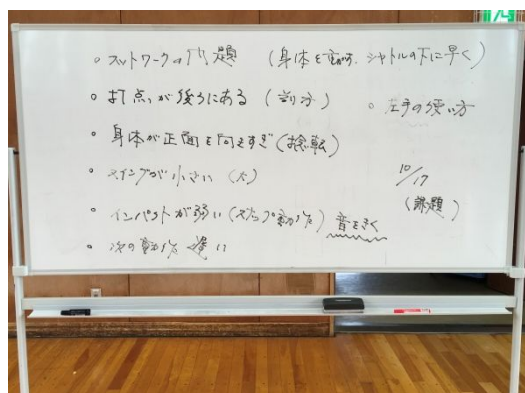 ・フットワークの問題 (身体を動かす、シャトルの下に早く)
・打点が後ろにある (打ち方)
・左手の使い方
・身体が正面を向きすぎ (捻転)
・スイングが小さい (大)
10/17
(課題)
・インパクトが弱い (スナップ動作) 音をきく
・次の動作 遅い